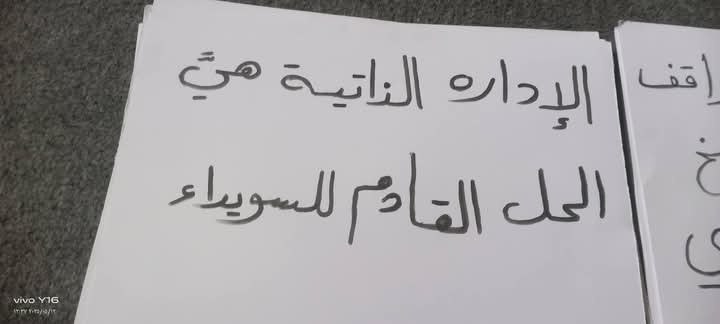 الإداره الذاتية هيَّ
الحل القادم للسويداء
واقف
vivo Y16